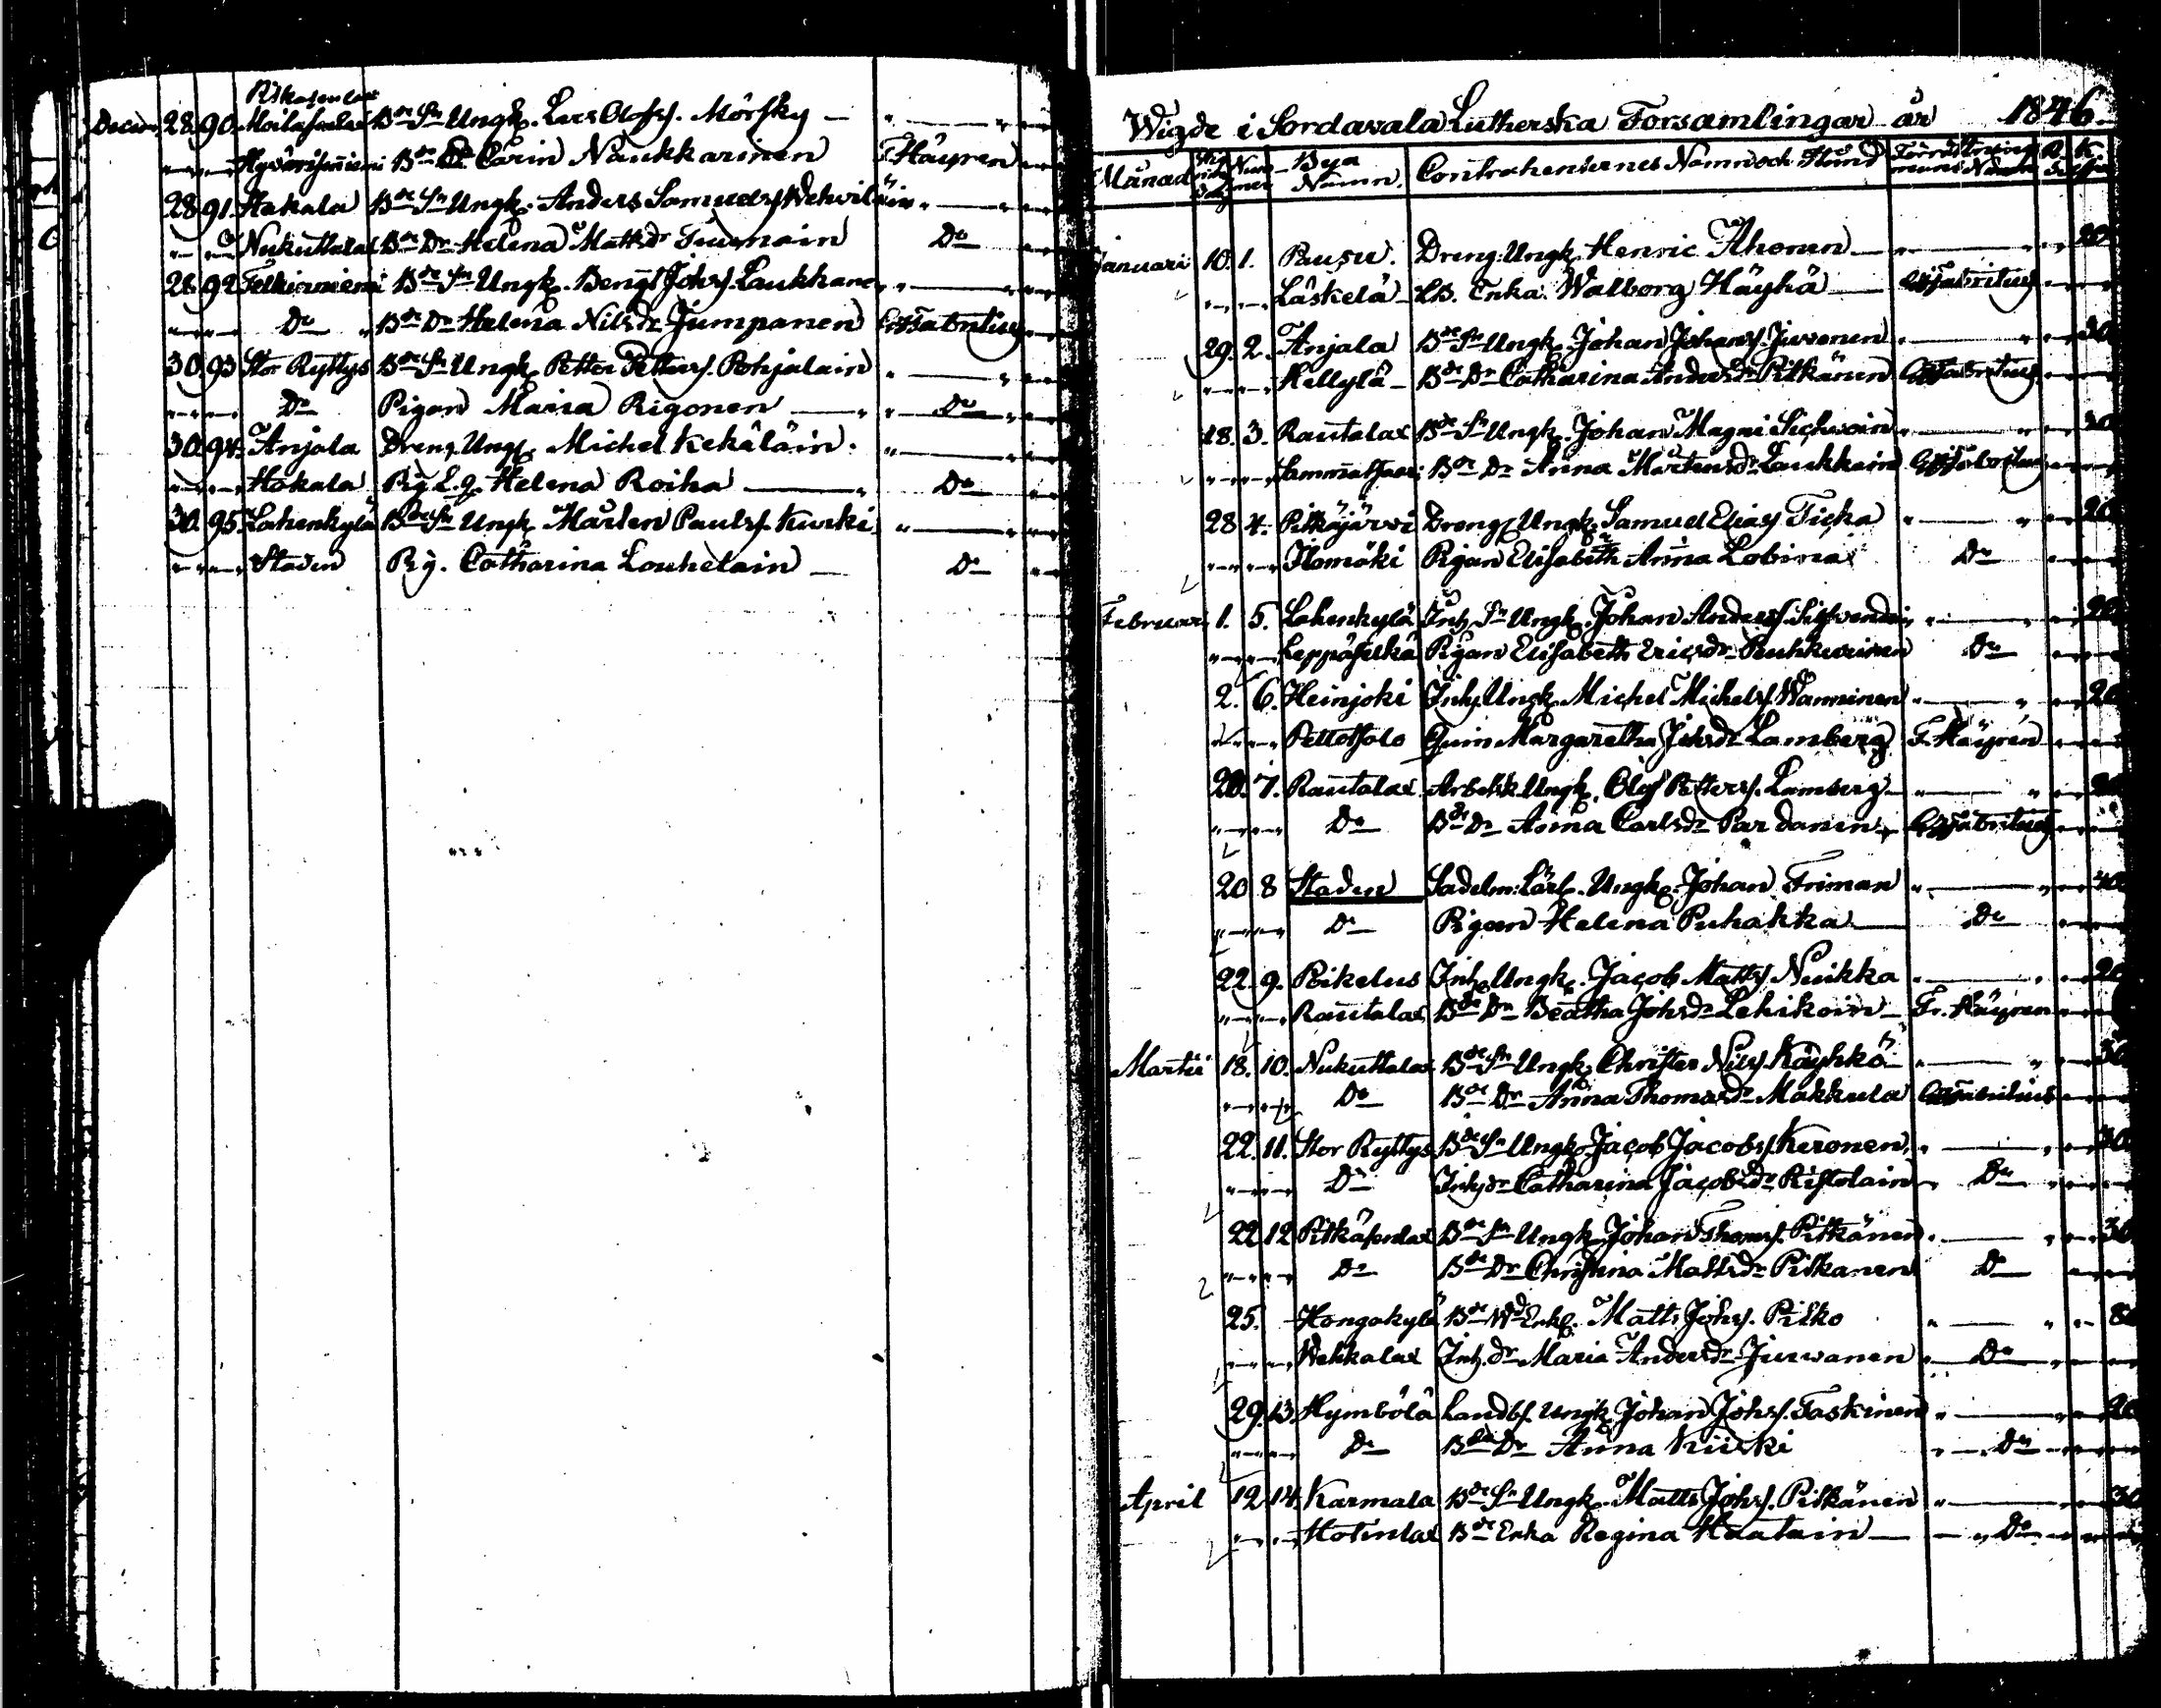 Decem. 28. 90. Bde Sn Ungk. Lars Olofs. Mörsky
Bde Dr Carin Naukkarinen F. Häyren
28 91. Hakala Bde Sn Ungk. Anders Samuels. Wehviläin
Nukuttalax Bde Dr Helena Mattsdr Do
28. 92 Telkinniemi Bde Sn Ungk. Bengt Johs. Laukkane
Do Bde Dr Helena Nilsdr Jumpanen
30. 93 Stor Ryttys Bde Sn Ungk. Petter Petters. Pohjalain
Do Pigan Maria Rigonen Do
30. 94. Anjala Dreng Ungk. Michel Kekäläin.
Hakala Pig. Helena Roiha Do
30. 95. Lahenkylä Bde Sn Ungk. Mårten Pauls. Kurki
Staden Pig. Catharina Louhelain Do
Wigde i Sordavala Lutherska Forsamlingar år 1846.
Månad Bya Namn. Contrahenternes Namn och Stånd
Januari 10. 1. Pausu. Dreng Ungk. Henric Ahonen 20
Läskelä Enka Walborg Häyhä
29. 2. Anjala Bde Sn Ungk. Johan Johans. Juvonen 30
Hellylä Bde Dr Catharina Andersdr Pitkänen
18. 3. Rautalax Bde Sn Ungk. Johan Magni 30
Bde Dr Anna Mårtensdr Laukkain
28 4. Pitkäjärvi Dreng Ungk. Samuel Elias Ticka 20
Ilomäki Pigan Elisabeth Anna Lobina Do
Februari 1. 5. Lahenkylä Inh. Sn Ungk. Johan Anders. 20
Leppäselkä Pigan Elisabeth Ericsdr Puhkurinen Do
2. 6. Heinjoki Inh. Ungk. Michel Michels. Wanninen 20
Margaretha Johsdr Lamberg F. Häyrén
20. 7. Rautalax Arbetsk. Ungk. Olof Petters. Lamberg
Do Bde Dr Anna Carlsdr Pardanen
20 8 Staden Sadelm: Lärl. Ungk. Johan Friman 40
Do Pigan Helena Puhakka Do
22. 9. Rikelus Inh. Ungk. Jacob Matts. Nuikka 20
Rautalax Bde Dr Beatha Johsdr Lehikoin Fr. Häyren
Martii 18. 10. Nukuttalax Bde Sn Ungk. Christer Nils. Käyhkö 30
Do Bde Dr Anna Thomasdr Makkula
22. 11. Stor Ryttys Bde Sn Ungk. Jacob Jacobs. Keronen 30
Do Inh. dr Catharina Jacobsdr Ristolain Do
22 12 Bde Sn Ungk. Johan Thoms. Pitkänen 30
Do Bde Dr Christina Mattsdr Pitkanen Do
25. Hongakylä Bde Wd Enkl. Matts Johs. Pitko 80
Wehkalax Inh. dr Maria Andersdr Juwanen Do
29. 13 Hymbölä Landb. Ungk. Johan Johs. Taskinen 20
Do Bde Dr Anna Kiiski Do
April 12 14. Karmala Bde Sn Ungk. Matts Johs. Pitkänen 30
Hotinlax Bde Enka Regina Haatain Do